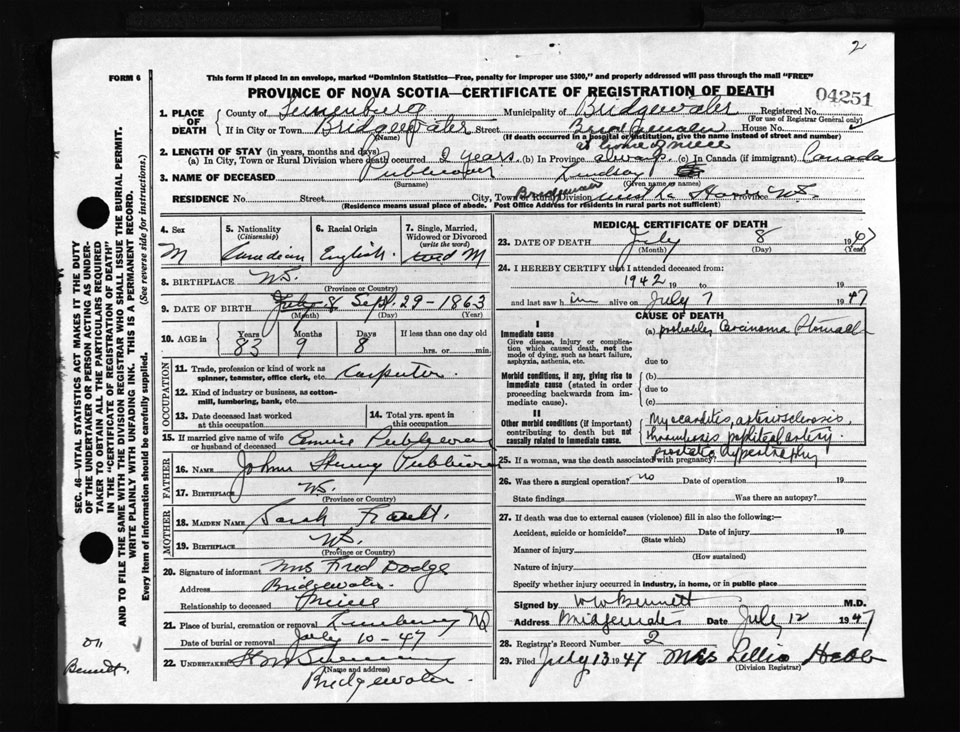 2
FORM 6
This form if placed in an envelope, marked "Dominion Statistics—Free, penalty for improper use $300," and properly addressed will pass through the mail "FREE"
PROVINCE OF NOVA SCOTIA—CERTIFICATE OF REGISTRATION OF DEATH
04251
1. PLACE OF DEATH
County of Lunenburg Municipality of Bridgewater Registered No.
(For use of Registrar General only)
If in City or Town Bridgewater Street House No.
(Name) (If death occurred in a hospital or institution, give the name instead of street and number)
at home of niece
2. LENGTH OF STAY (in years, months and days)
(a) In City, Town or Rural Division where death occurred 2 years (b) In Province always (c) In Canada (if immigrant) Canada
3. NAME OF DECEASED Publicover Lindsay
(Surname) (Given name or names)
RESIDENCE No. Street City, Town or Rural Division Bridgewater Province N.S.
(Residence means usual place of abode. Post Office Address for residents in rural parts not sufficient)
4. Sex M
5. Nationality (Citizenship) Canadian
6. Racial Origin English
7. Single, Married, Widowed or Divorced (write the word) Wed M
8. BIRTHPLACE N.S.
(Province or Country)
9. DATE OF BIRTH July 8 Sept. 29 - 1863
(Month) (Day) (Year)
10. AGE in Years 83 Months 9 Days 8 If less than one day old
hrs. or min.
OCCUPATION
11. Trade, profession or kind of work as spinner, teamster, office clerk, etc. Carpenter.
12. Kind of industry or business, as cotton-mill, lumbering, bank, etc.
13. Date deceased last worked at this occupation
14. Total yrs. spent in this occupation
15. If married give name of wife or husband of deceased Annie Publicover
FATHER
16. NAME John Henry Publicover
17. BIRTHPLACE N.S.
(Province or Country)
MOTHER
18. MAIDEN NAME Sarah
19. BIRTHPLACE N.S.
(Province or Country)
20. Signature of informant Mrs Fred Dodge
Address Bridgewater
Relationship to deceased Niece
21. Place of burial, cremation or removal Lunenburg NS
Date of burial or removal July 10 - 47
22. UNDERTAKER
(Name and address)
Bridgewater.
MEDICAL CERTIFICATE OF DEATH
23. DATE OF DEATH July 8 1947
(Month) (Day) (Year)
24. I HEREBY CERTIFY that I attended deceased from:
1942 19 to 19
and last saw him alive on July 7 1947
CAUSE OF DEATH
I
Immediate cause
Give disease, injury or complication which caused death, not the mode of dying, such as heart failure, asphyxia, asthenia, etc.
(a) probably Carcinoma Stomach
due to
Morbid conditions, if any, giving rise to immediate cause (stated in order proceeding backwards from immediate cause).
(b)
due to
(c)
II
Other morbid conditions (if important) contributing to death but not causally related to immediate cause.
Myocarditis, arteriosclerosis,
thrombosis popliteal artery.
prostatic hypertrophy
25. If a woman, was the death associated with pregnancy?
26. Was there a surgical operation? no Date of operation 19
State findings Was there an autopsy?
27. If death was due to external causes (violence) fill in also the following:—
Accident, suicide or homicide? Date of injury 19
(State which)
Manner of injury
(How sustained)
Nature of injury
Specify whether injury occurred in industry, in home, or in public place
Signed by W W Bennett M.D.
Address Bridgewater Date July 12 1947
28. Registrar's Record Number 2
29. Filed July 13 1947 Mrs Lillia Hebb
(Division Registrar)
SEC. 46—VITAL STATISTICS ACT MAKES IT THE DUTY
OF THE UNDERTAKER OR PERSON ACTING AS UNDER-
TAKER TO OBTAIN ALL THE PARTICULARS REQUIRED
IN THE "CERTIFICATE OF REGISTRATION OF DEATH"
AND TO FILE THE SAME WITH THE DIVISION REGISTRAR WHO SHALL ISSUE THE BURIAL PERMIT.
WRITE PLAINLY WITH UNFADING INK. THIS IS A PERMANENT RECORD.
Every item of information should be carefully supplied. (See reverse side for instructions.)
Bennett.